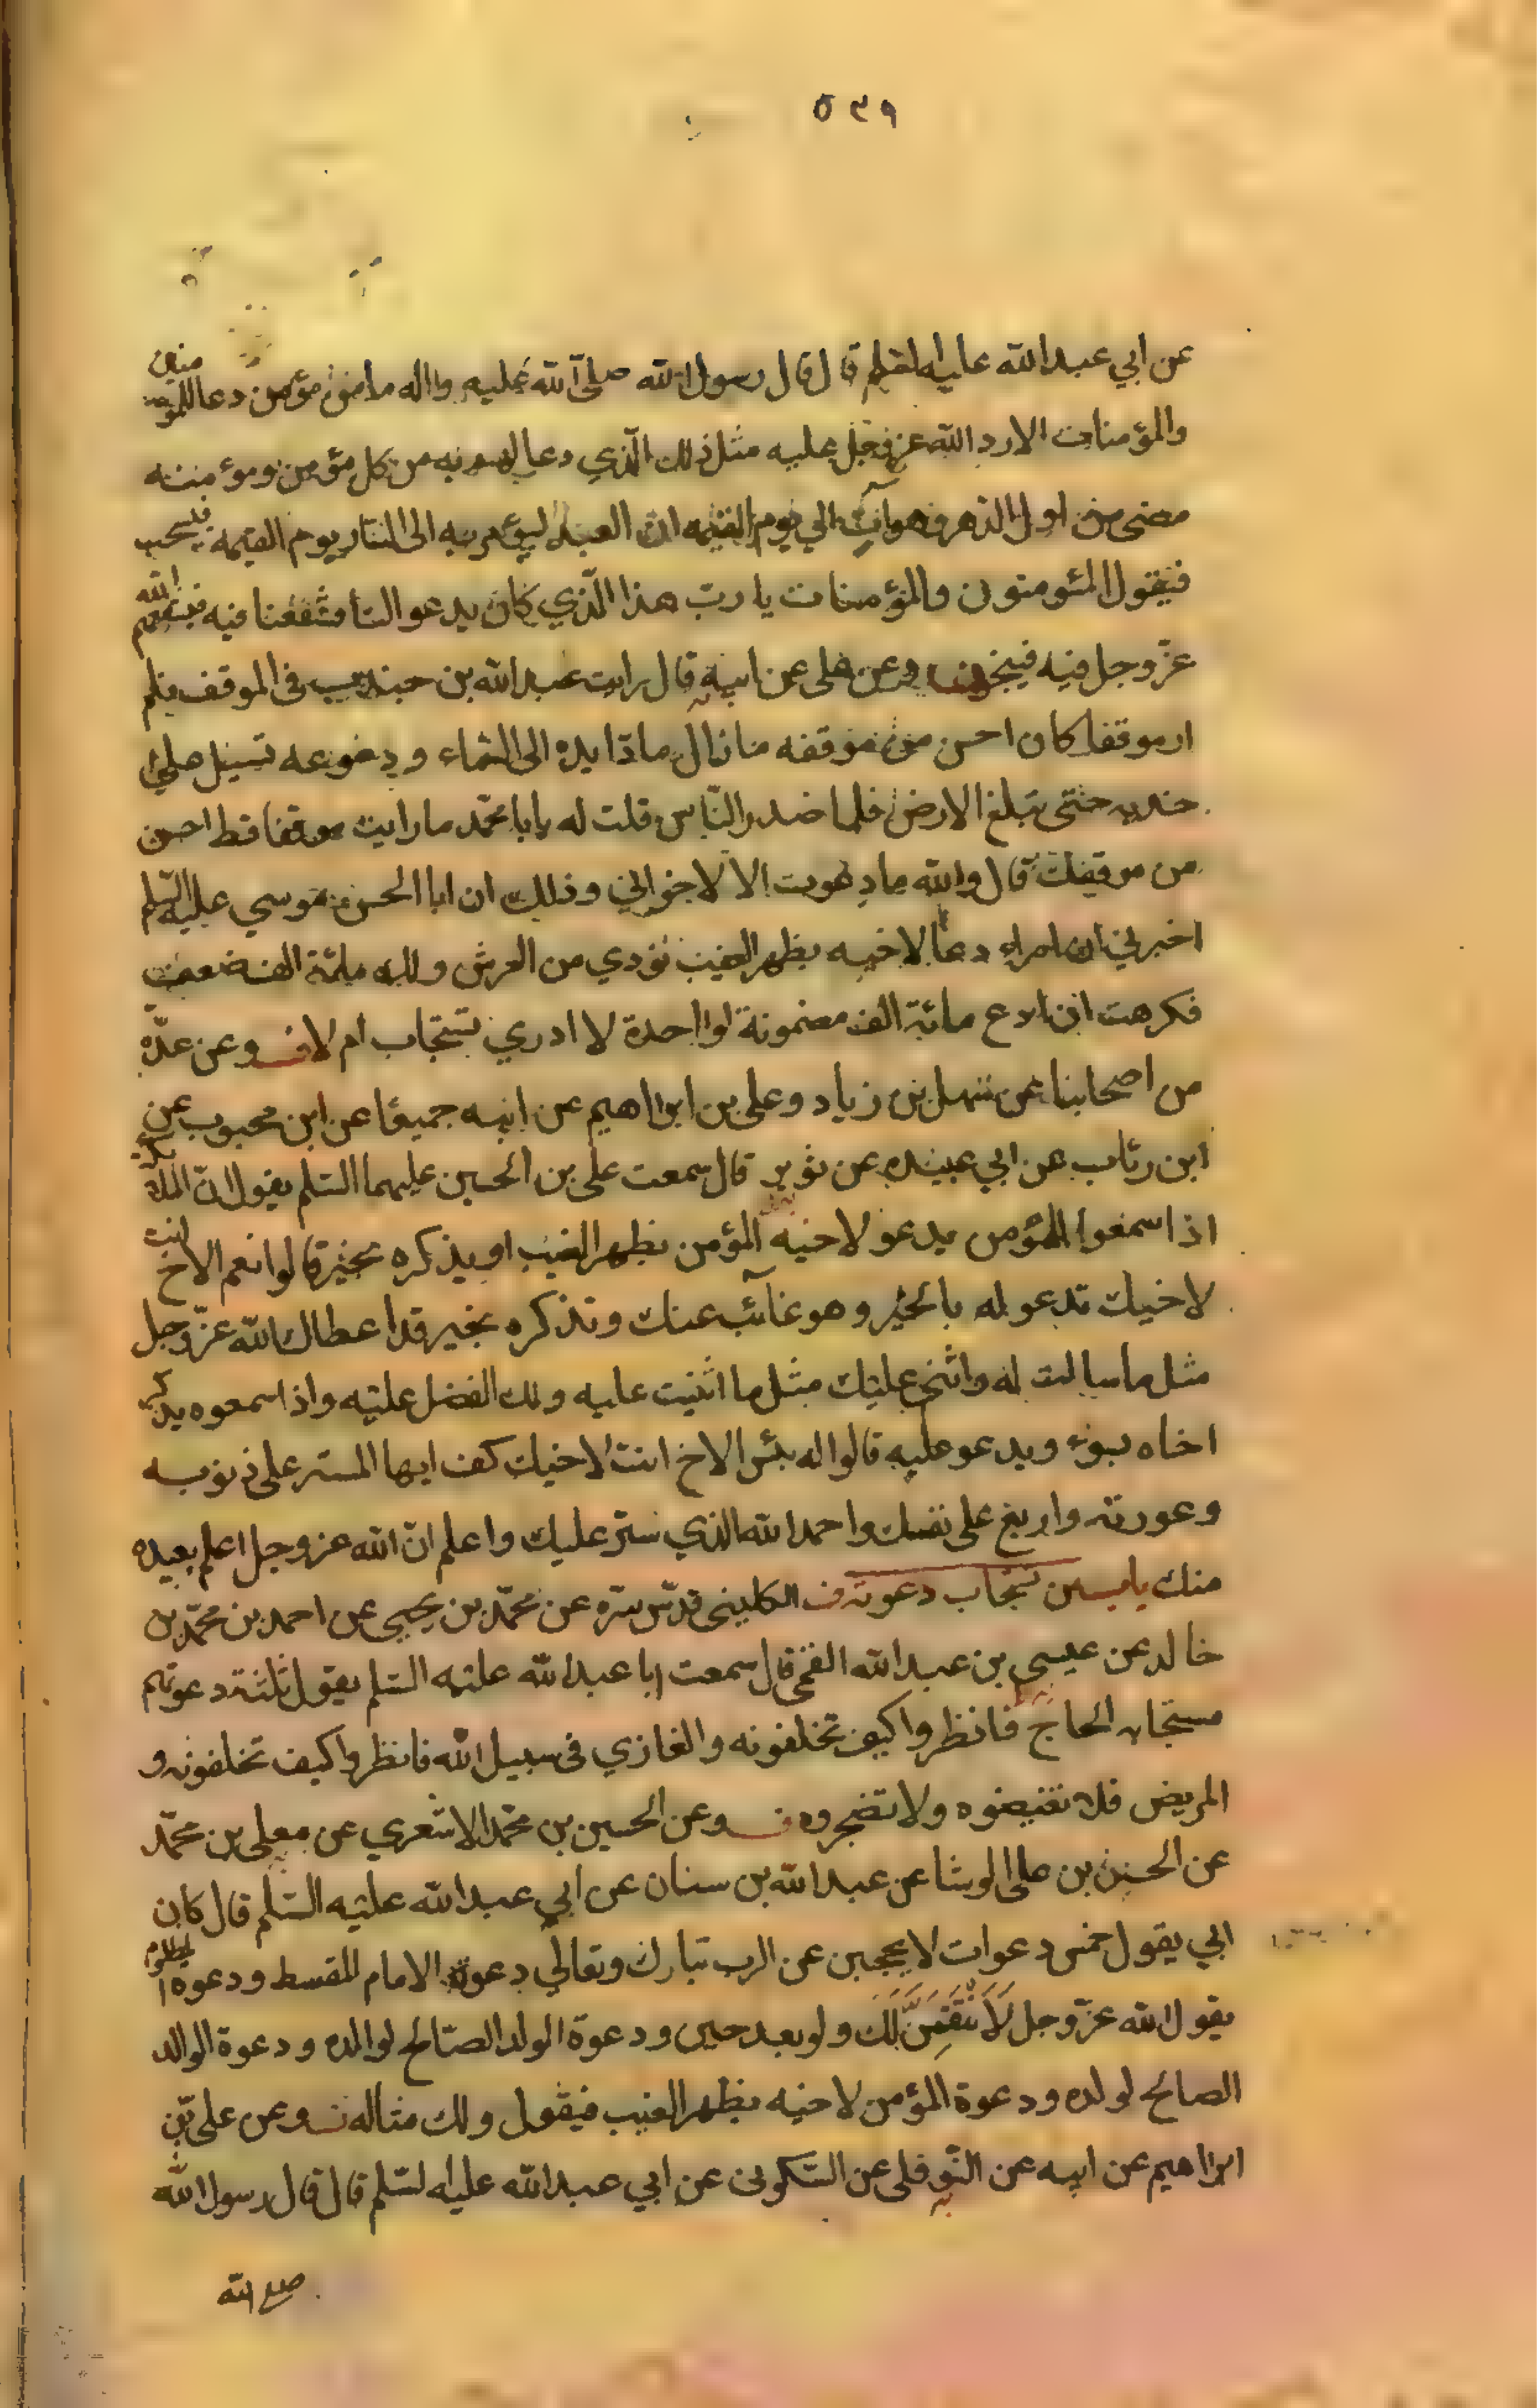 ٥٣٩
عن ابي عبد الله عليه السلم قال قال رسول الله صلى الله عليه واله ما من مؤمن دعا للمؤمنين
والمؤمنات الا رد الله عز وجل عليه مثل ذلك الذي دعا لهم به من كل مؤمن ومؤمنة
مضى من اول الدهر وهو ات الي يوم القيمه ان العبد ليؤمر به الى النار يوم القيمة فيسحب
فيقول المئومنون والمؤمنات يا ربّ هذا الّذي كان يدعو النا فشفعنا فيه فيشفعهم الله
عزّ وجل فيه فينجو وعن على عن ابيه قال رايت عبد الله بن جندب في الموقف فلم
ار موقفا كان احسن من موقفه ما زال مادّا يده الى السّماء و دموعه تسيل على
خديه حتّى تبلغ الارض فلما صدر النّاس قلت له يابا محمّد ما رايت موقفا قط احسن
من موقفك قال والله ما دعوت الا لاخواني وذلك ان ابا الحسن موسي عليه السّلم
اخبرني ان امراء دعا لاخيه بظهر الغيب نؤدي من العرش ولك مائة الف ضعف
فكرهت ان ادع مائة الف مضمونة لواحدة لا ادري تستجاب ام لا وعن عدّة
من اصحابنا عن سهل بن زياد وعلى بن ابراهيم عن ابيه جميعًا عن ابن محبوب عن
ابن رئاب عن ابي عبيده عن ثوير قال سمعت على بن الحسين عليهما السّلم يقول انّ الملائكة
اذا سمعوا المؤمن يدعو لاخيه المؤمن بظهر الغيب او يذكره بخير قالوا نعم الاخ انت
لاخيك تدعو له بالخير وهو غائب عنك وتذكره بخير قد اعطاك الله عزّ وجل
مثل ما سالت له واثنى عليك مثل ما اثنيت عليه ولك الفضل عليه واذا سمعوه يذكر
اخاه بسوء ويدعو عليه قالوا له بئس الاخ انت لاخيك كف ايها المستر على ذنوبه
وعورته واربع على نفسك واحمد الله الذي ستر عليك واعلم انّ الله عز وجل اعلم بعبده
منك باب من تستجاب دعوته الكليني قدّس سّره عن محمّد بن يحيى عن احمد بن محمّد بن
خالد عن عيسى بن عبد الله القمّى قال سمعت ابا عبد الله عليه السّلم يقول ثلثة دعوتهم
مستجابه الحاجّ فانظروا كيف تخلفونه والغازي في سبيل الله فانظروا كيف تخلفونه و
المريض فلا تغيضوه ولا تضجروه وعن الحسين بن محمّد الاشعري عن معلى بن محمّد
عن الحسن بن على الوشا عن عبد الله بن سنان عن ابي عبد الله عليه السّلم قال كان
ابي يقول خمس دعوات لا يحجبن عن الرب تبارك وتعالي دعوة الامام المقسط ودعوة المظلوم
يقول الله عزّ وجل لَاَنْتَقِمَنَّ لَكَ ولو بعد حين ودعوة الولد الصّالح لوالده ودعوة الوالد
الصالح لولده ودعوة المؤمن لاخيه بظهر الغيب فيقول ولك مثاله وعن على بن
ابراهيم عن ابيه عن النّوفلى عن السّكونى عن ابي عبد الله عليه السّلم قال قال رسول الله
صلى الله